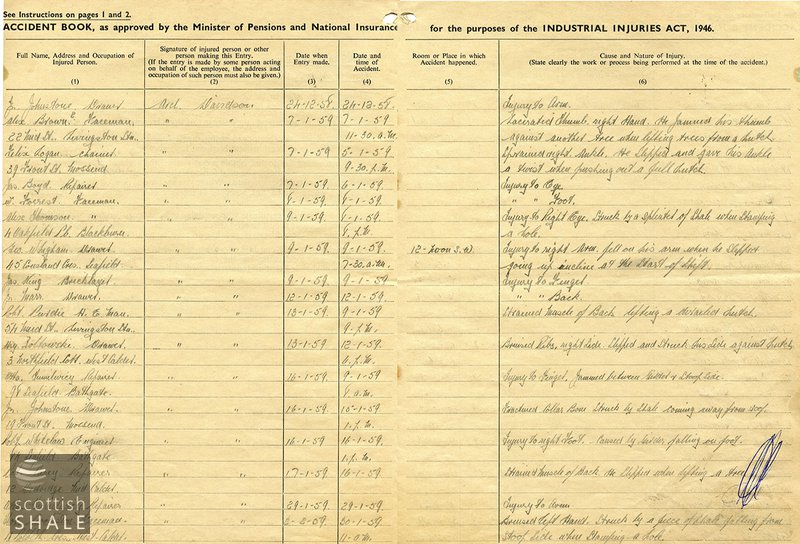 See Instructions on pages 1 and 2.
ACCIDENT BOOK, as approved by the Minister of Pensions and National Insurance for the purposes of the INDUSTRIAL INJURIES ACT, 1946.
Full Name, Address and Occupation of Injured Person. (1)
Signature of injured person or other person making this Entry. (If the entry is made by some person acting on behalf of the employee, the address and occupation of such person must also be given.) (2)
Date when Entry made. (3)
Date and time of Accident. (4)
Room or Place in which Accident happened. (5)
Cause and Nature of Injury. (State clearly the work or process being performed at the time of the accident.) (6)
Johnstone Drawer Davidson 24-12-58 24-12-58 Injury to Arm.
Alex Brown Faceman " " 7-1-59 7-1-59 Lacerated Thumb, right Hand. He jammed his thumb
22 Main St. Livingston Stn. 11-30 a.m. against another tree when lifting trees from a hutch
Felix Cogan " " 7-1-59 5-1-59 Sprained right Ankle. He slipped and gave his ankle
39 Front St. Mossend 9-30 p.m. a twist when pushing out a full hutch.
Jas Boyd Repairer " " 7-1-59 6-1-59 Injury to Eye.
Forrest Faceman " " 8-1-59 8-1-59 " " Foot.
Alex Thomson " " " 9-1-59 8-1-59 Injury to Right Eye. Struck by a splinter of Shale when stamping
4 Blackburn 8 p.m. a hole.
Geo Whigham Drawer " " 9-1-59 9-1-59 12 Injury to right Arm. fell on his arm when he slipped
45 Cres. Seafield 7-30 a.m. going up incline at the start of shift.
Jas King Bricklayer " " 9-1-59 9-1-59 Injury to Finger
Marr Drawer " " 12-1-59 12-1-59 " " Back.
Robt Purdie Man " " 13-1-59 9-1-59 Strained Muscle of Back lifting a derailed hutch.
54 Main St. Livingston Stn. 9 p.m.
Drawer " " 13-1-59 12-1-59 Bruised Ribs, right side. Slipped and struck his side against hutch
3 Westfield Cott. West Calder 6 p.m.
Repairer " " 16-1-59 9-1-59 Injury to Finger. Jammed between and side.
98 Seafield Bathgate. 8 a.m.
Johnstone Drawer " " 16-1-59 15-1-59 Fractured Collar Bone Struck by Shale coming away from roof.
19 Front St. Mossend 1 p.m.
Whitelaw " " 16-1-59 16-1-59 Injury to right Foot. Caused by falling on foot.
Bathgate 1 p.m.
Repairer " " 17-1-59 16-1-59 Strained Muscle of Back. He slipped when lifting a tree
Mid Calder
Repairer " " 29-1-59 29-1-59 Injury to Arm
Faceman " " 2-2-59 30-1-59 Bruised left Hand. Struck by a piece of shale falling from
West Calder 11 a.m. side when stamping a hole.
scottish
SHALE